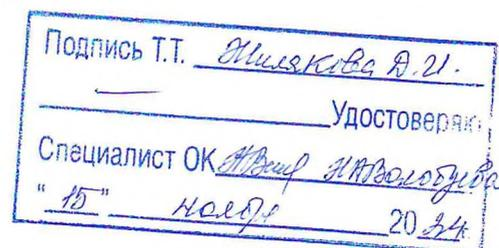 Подпись Т.Т. Жилякова Д.И.
Удостоверяю
Специалист ОК Н.А.Волобуева
"15" ноября 2024